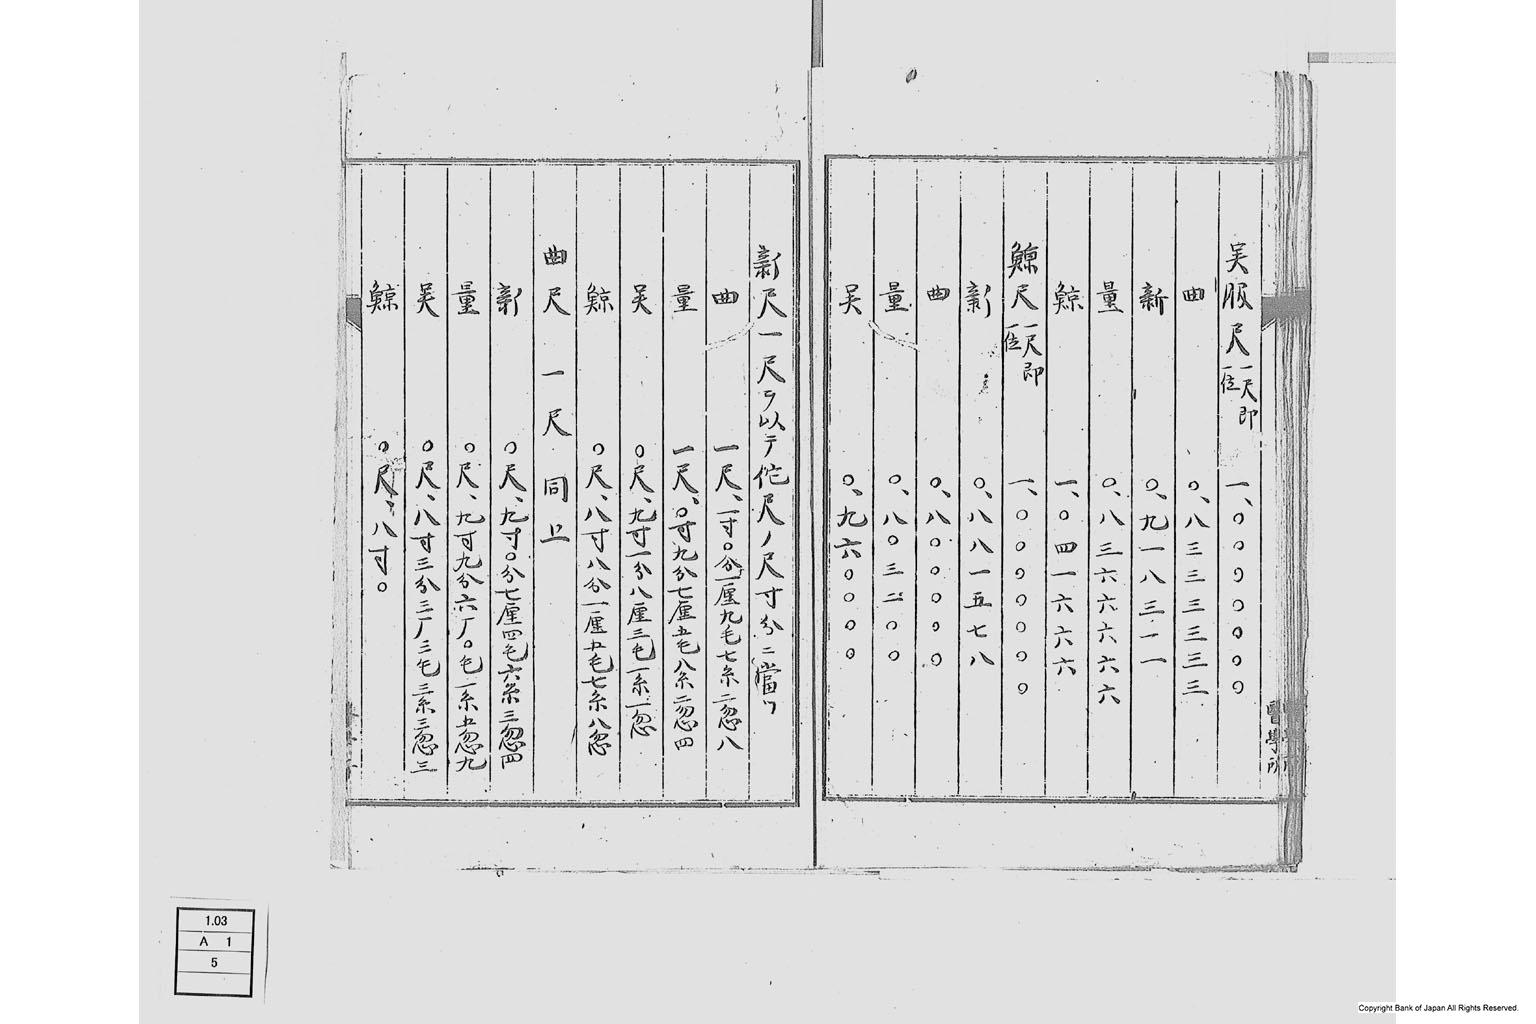 呉服尺 一尺即一位 一、〇〇〇〇〇〇〇
曲 〇、八三三三三三三
新 〇、九一八三一一
量 〇、八三六六六六六
鯨 一、〇四一六六六六
鯨尺 一尺即一位 一、〇〇〇〇〇〇〇
新 〇、八八一五七八
曲 〇、八〇〇〇〇〇
量 〇、八〇三二〇〇
呉 〇、九六〇〇〇〇
新尺一尺ヲ以テ佗尺ノ尺寸分ニ當ツ
曲 一尺、一寸〇分一厘九毛七糸二忽八
量 一尺、〇寸九分七厘五毛八糸二忽四
呉 〇尺、九寸一分八厘三毛一糸一忽
鯨 〇尺、八寸八分一厘五毛七糸八忽
曲尺 一尺 同上
新 〇尺、九寸〇分七厘四毛六糸三忽四
量 〇尺、九寸九分六厂〇毛一糸五忽九
呉 〇尺、八寸三分三厂三毛三糸三忽三
鯨 〇尺、八寸。
1.03
A 1
5
Copyright Bank of Japan All Rights Reserved.